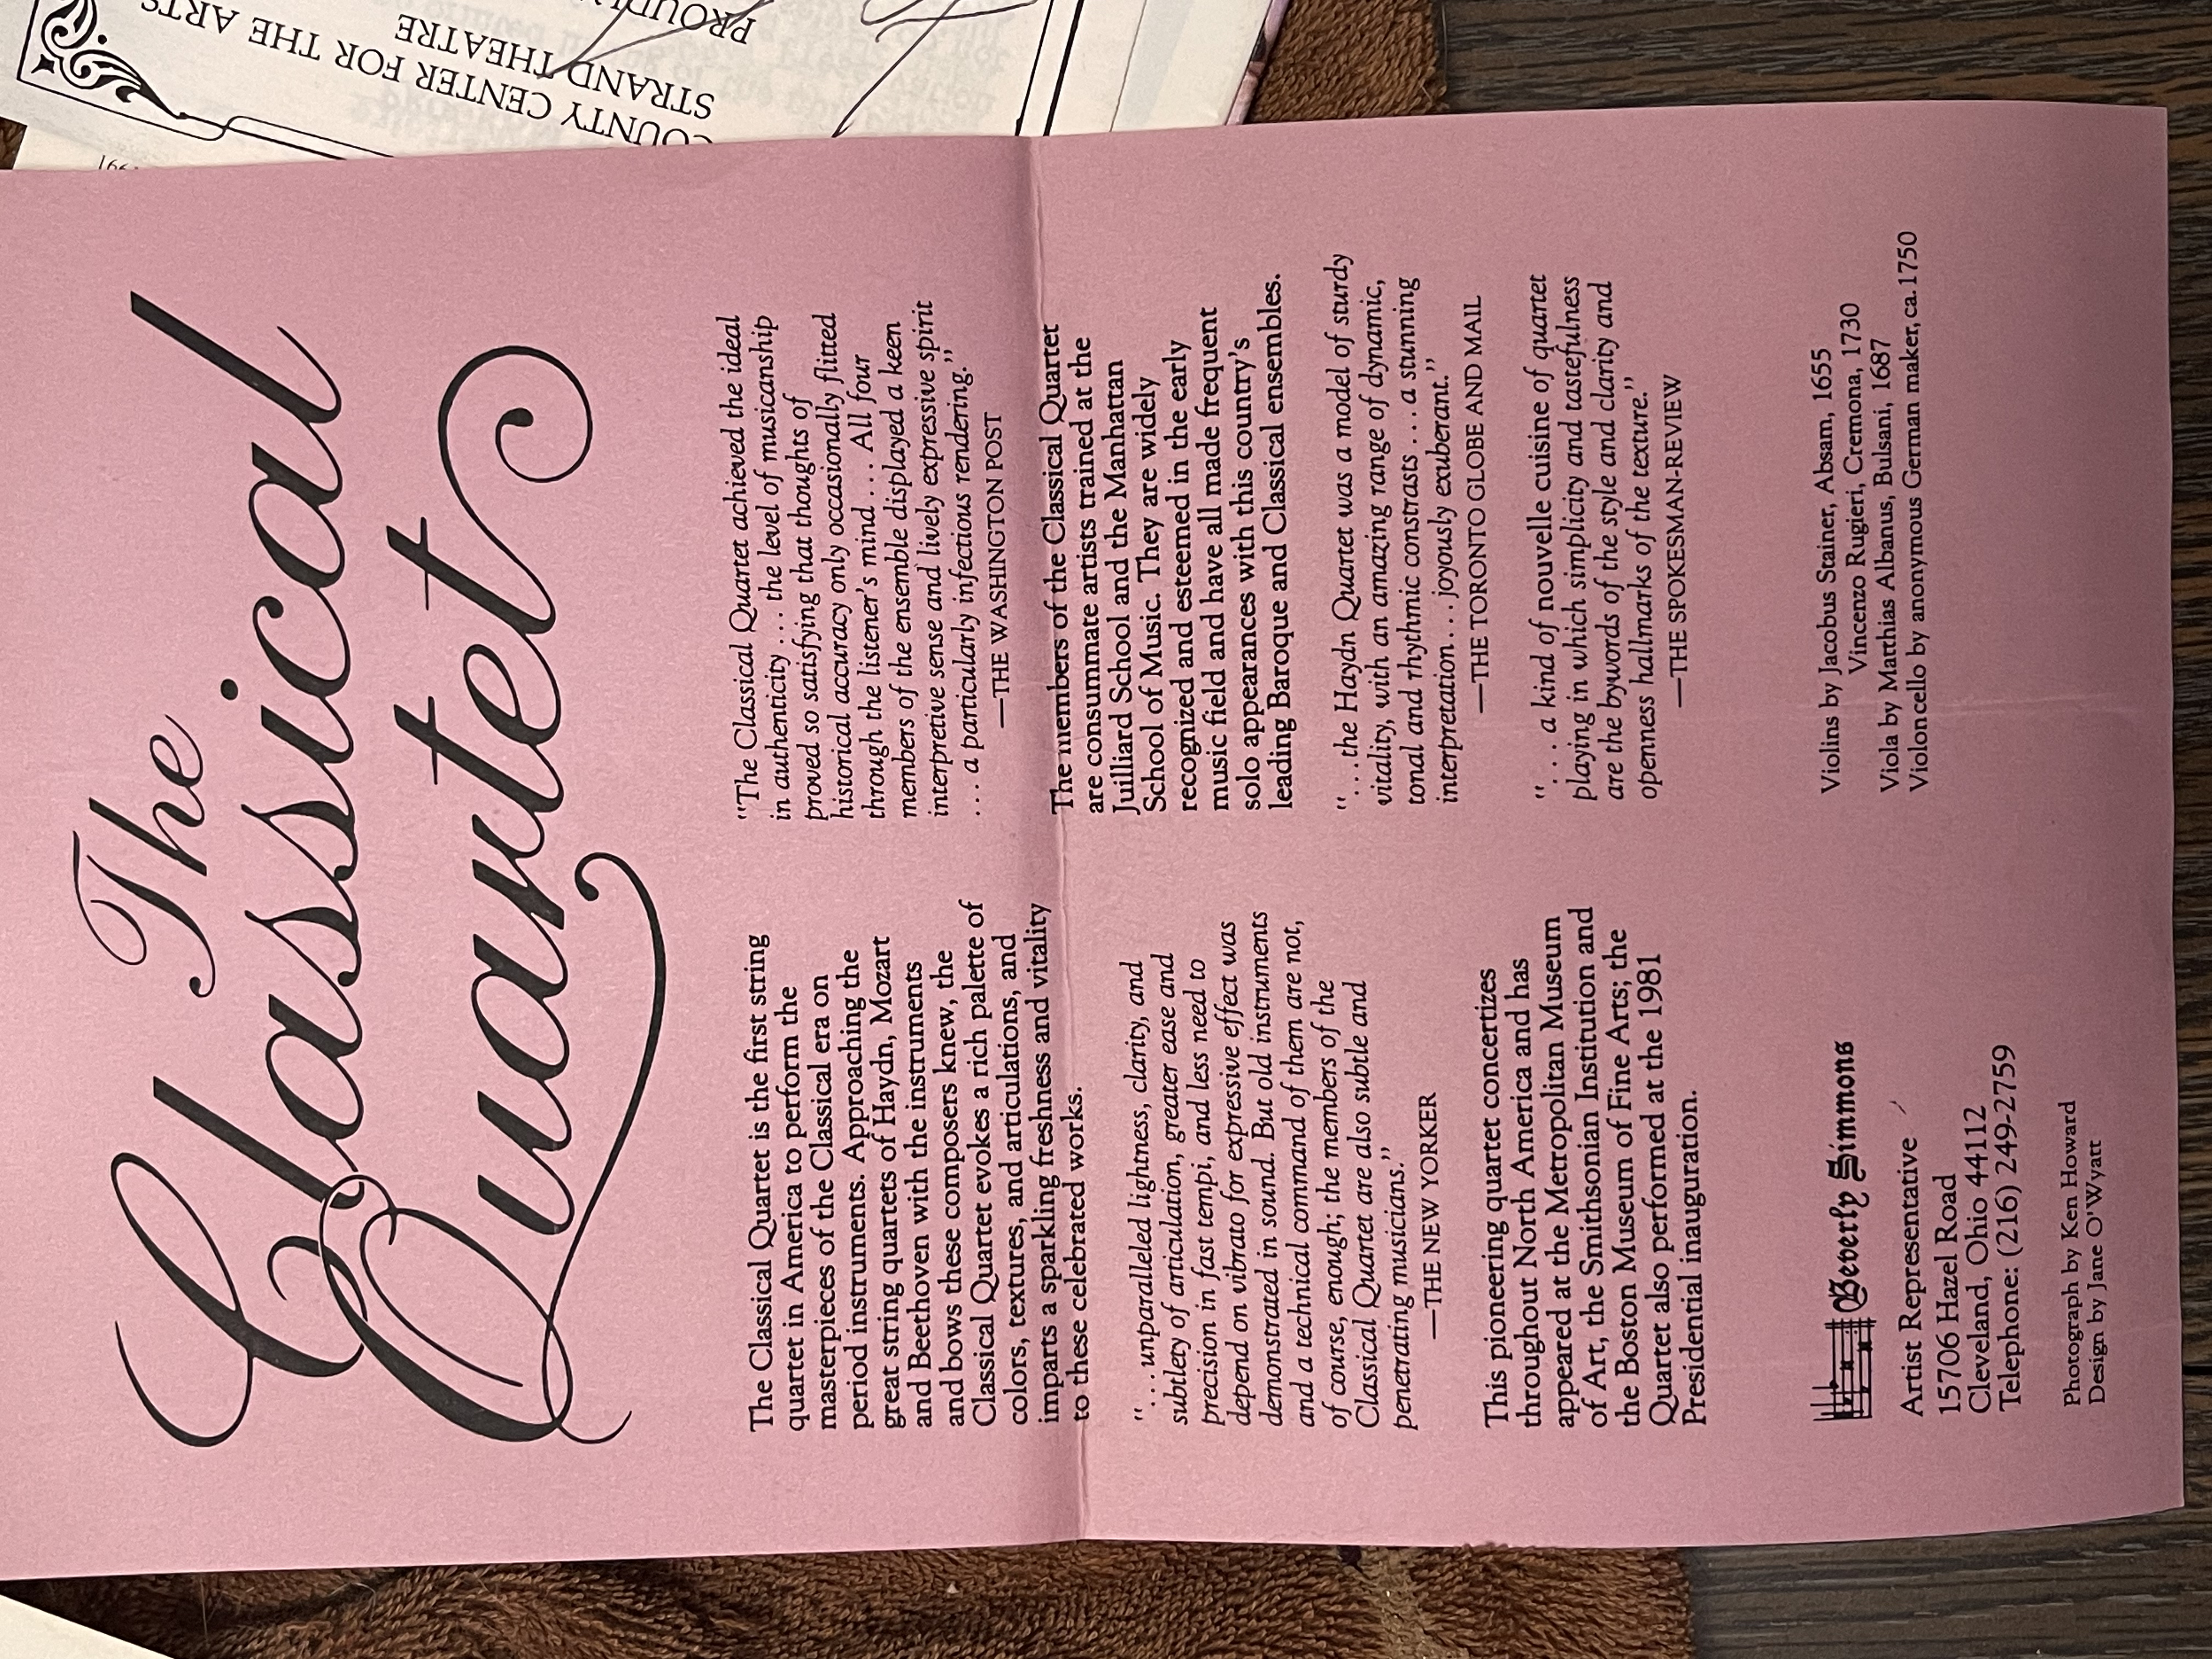 The
Classical
Quartet
The Classical Quartet is the first string
quartet in America to perform the
masterpieces of the Classical era on
period instruments. Approaching the
great string quartets of Haydn, Mozart
and Beethoven with the instruments
and bows these composers knew, the
Classical Quartet evokes a rich palette of
colors, textures, and articulations, and
imparts a sparkling freshness and vitality
to these celebrated works.
“. . . unparalleled lightness, clarity, and
subtlety of articulation, greater ease and
precision in fast tempi, and less need to
depend on vibrato for expressive effect was
demonstrated in sound. But old instruments
and a technical command of them are not,
of course, enough; the members of the
Classical Quartet are also subtle and
penetrating musicians.”
—THE NEW YORKER
This pioneering quartet concertizes
throughout North America and has
appeared at the Metropolitan Museum
of Art, the Smithsonian Institution and
the Boston Museum of Fine Arts; the
Quartet also performed at the 1981
Presidential inauguration.
Beverly Simmons
Artist Representative
15706 Hazel Road
Cleveland, Ohio 44112
Telephone: (216) 249-2759
Photograph by Ken Howard
Design by Jane O'Wyatt
“The Classical Quartet achieved the ideal
in authenticity . . . the level of musicanship
proved so satisfying that thoughts of
historical accuracy only occasionally flitted
through the listener's mind . . . All four
members of the ensemble displayed a keen
interpretive sense and lively expressive spirit
. . . a particularly infectious rendering.”
—THE WASHINGTON POST
The members of the Classical Quartet
are consummate artists trained at the
Juilliard School and the Manhattan
School of Music. They are widely
recognized and esteemed in the early
music field and have all made frequent
solo appearances with this country's
leading Baroque and Classical ensembles.
“. . . the Haydn Quartet was a model of sturdy
vitality, with an amazing range of dynamic,
tonal and rhythmic constrasts . . . a stunning
interpretation . . . joyously exuberant.”
—THE TORONTO GLOBE AND MAIL
“. . . a kind of nouvelle cuisine of quartet
playing in which simplicity and tastefulness
are the bywords of the style and clarity and
openness hallmarks of the texture.”
—THE SPOKESMAN-REVIEW
Violins by Jacobus Stainer, Absam, 1655
Vincenzo Rugieri, Cremona, 1730
Viola by Matthias Albanus, Bulsani, 1687
Violoncello by anonymous German maker, ca. 1750
COUNTY CENTER FOR THE ARTS
STRAND THEATRE